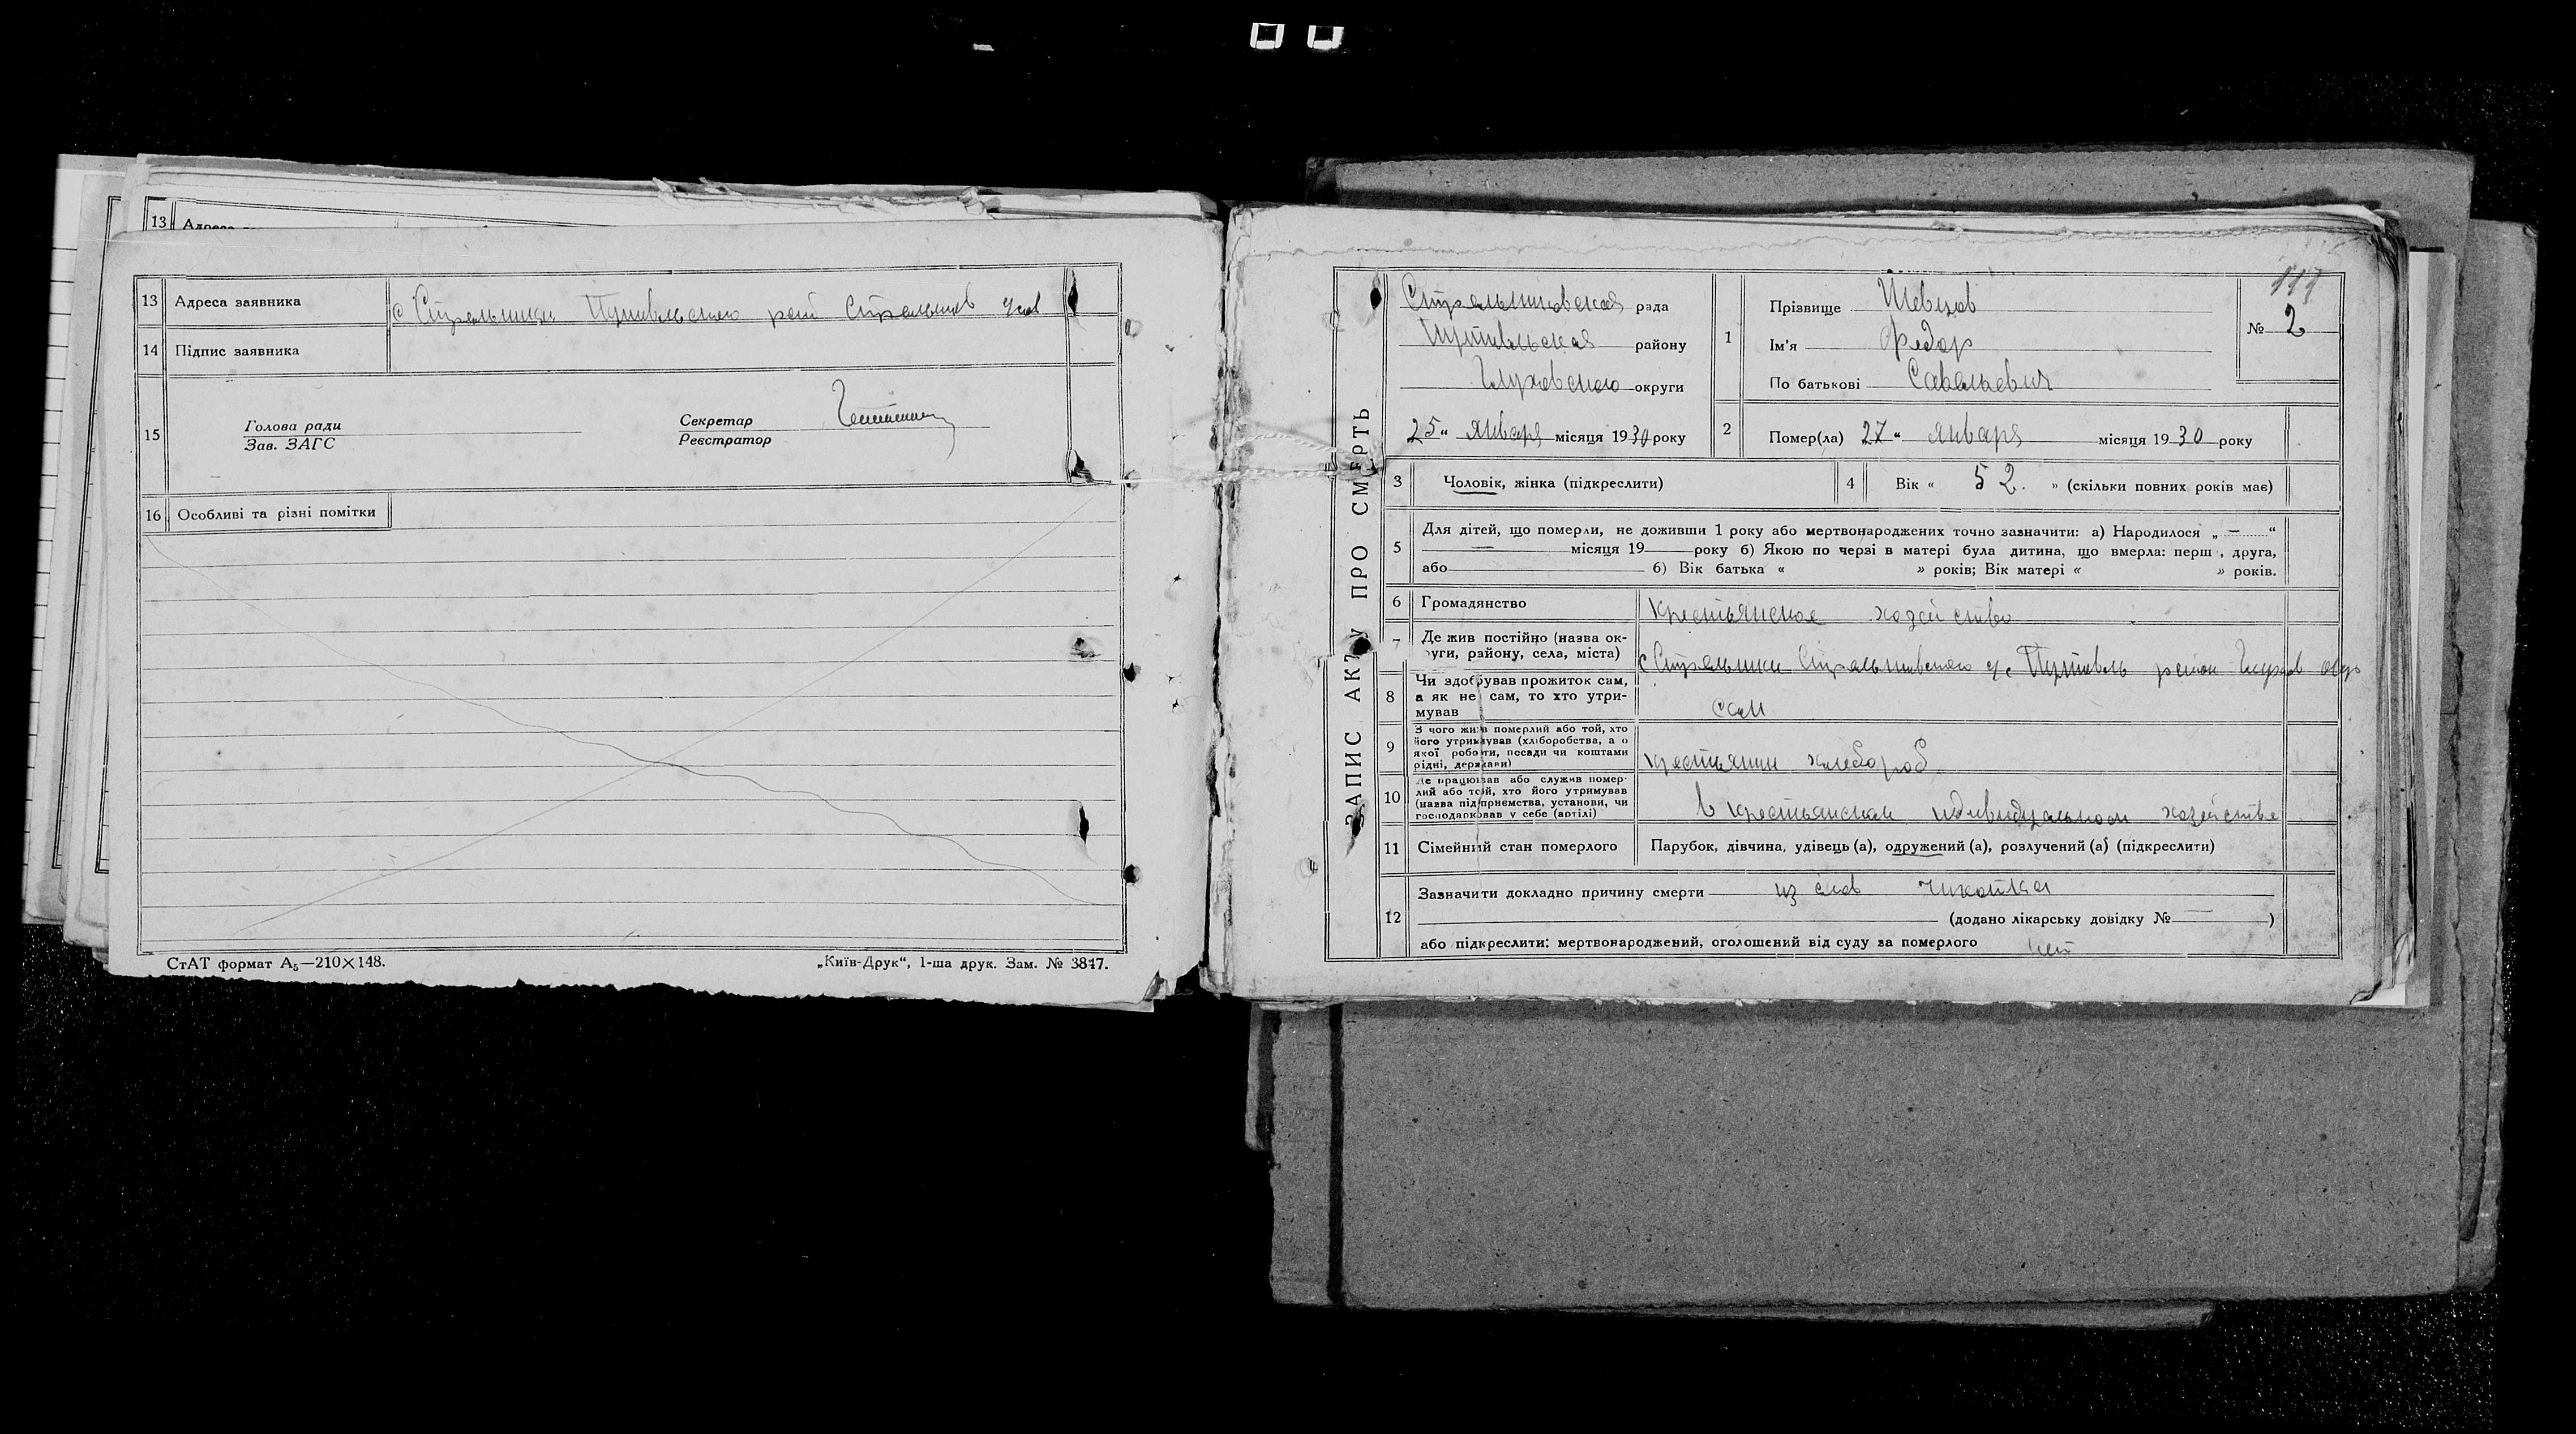 13 Адреса
13 Адреса заявника с Стрельники Путивльского рай Стрельников
14 Підпис заявника
15 Голова ради
Зав. ЗАГС
Секретар
Реєстратор
16 Особливі та різні помітки
СтАТ формат А5—210×148.
„Київ-Друк“, 1-ша друк. Зам. № 3847.
ЗАПИС АКТУ ПРО СМЕРТЬ
Стрельниковская рада
Путивльская району
Глуховского округи
25 “ января місяця 1930 року
1 Прізвище Шевцов
Ім'я Федор
По батькові Савельевич
117
№ 2
2 Помер(ла) 27 “ января місяця 1930 року
3 Чоловік, жінка (підкреслити)
4 Вік « 52. » (скільки повних років має)
5 Для дітей, що померли, не доживши 1 року або мертвонароджених точно зазначити: а) Народилося „ — “
— місяця 19 року б) Якою по черзі в матері була дитина, що вмерла: перш , друга,
або б) Вік батька « » років; Вік матері « » років.
6 Громадянство крестьянское хозейство
7 Де жив постійно (назва ок-
руги, району, села, міста) с Стрельники Стрельниковского с/с Путивль район Глухов окр
8 Чи здобував прожиток сам,
а як не сам, то хто утри-
мував сам
9 З чого жив померлий або той, хто
його утримував (хліборобства, а о
якої роботи, посади чи коштами
рідні, держави) крестьянин хлебороб
10 Де працював або служив помер-
лий або той, хто його утримував
(назва підприємства, установи, чи
господарював у себе (артілі) в крестьянском индивидуальном хозействе
11 Сімейний стан померлого Парубок, дівчина, удівець (а), одружений (а), розлучений (а) (підкреслити)
12 Зазначити докладно причину смерти из слов
(додано лікарську довідку № — )
або підкреслити: мертвонароджений, оголошений від суду за померлого нет